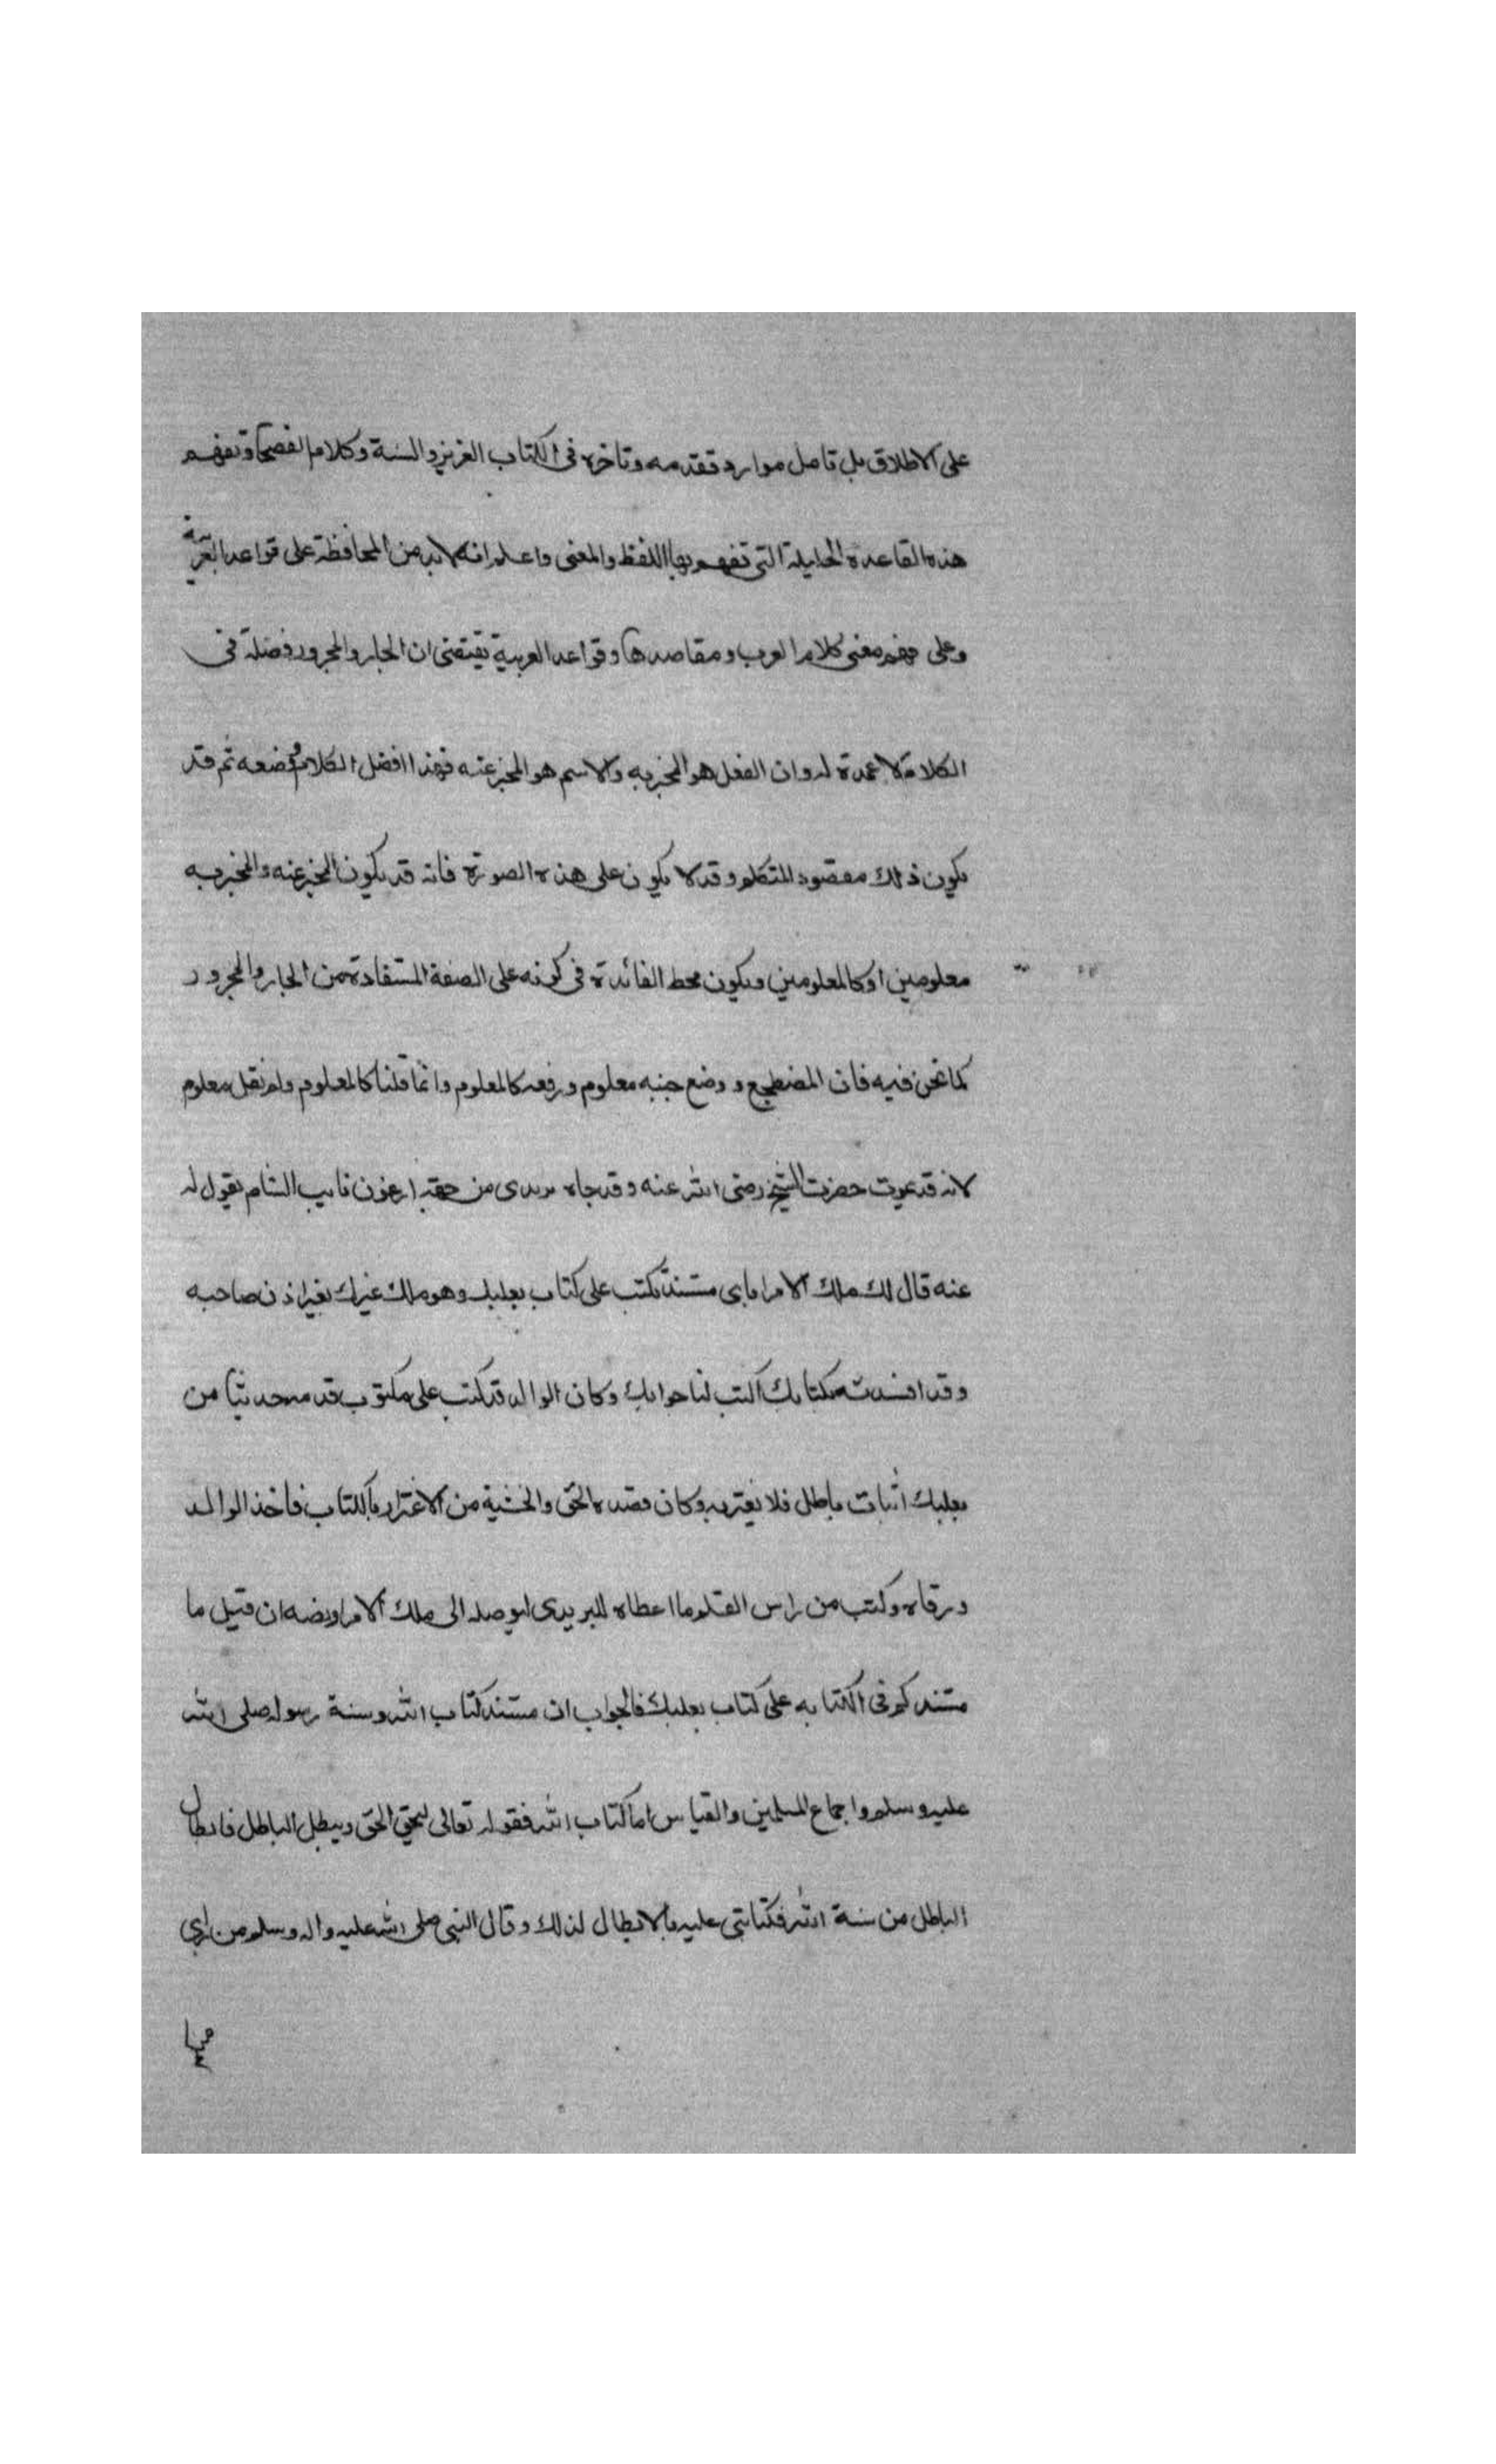 على الاطلاق بل تامل موارد تقدمه وتاخره فى الكتاب العزيز والسنة وكلام الفصحا وتفهم
هذه القاعدة الجليلة التى تفهم بها اللفظ والمعنى واعلم انه لابد من المحافظة على قواعد العربية
وعلى فهم معنى كلام العرب ومقاصدها وقواعد العربية يقتضى ان الجار والمجرور فضلة فى
الكلام لا عمدة له وان الفعل هو المخبر به والاسم هو المخبر عنه فهذا افضل الكلام وضعه ثم قد
يكون ذلك مقصود المتكلم وقد لا يكون على هذه الصورة فانه قد يكون المخبر عنه والمخبر به
معلومين او كالمعلومين ويكون محط الفائدة فى كونه على الصفة المستفادة من الجار والمجرور
كما نحن فيه فان المضطجع ووضع جنبه معلوم ورفعه كالمعلوم وانما قلنا كالمعلوم ولم نقل معلوم
لانه قد يموت حضرت الشيخ رضى الله عنه وقد جاه بريدى من جهة ارغون نايب الشام يقول له
عنه قال لك ملك الامرا باى مستند تكتب على كتاب بعلبك وهو ملك غيرك بغير اذن صاحبه
وقد افسدته بكتابك اكتب لنا جوابك وكان الوالد قد كتب على مكتوب قد مه حديثا من
بعلبك اثبات باطل فلا يغتر به وكان قصده الحق والخشية من الاغترار بالكتاب فاخذ الوالد
ورقاه وكتب من راس القلم ما اعطاه للبريدى ليوصله الى ملك الامرا ونصه ان قيل ما
مستندكم فى الكتابه على كتاب بعلبك فالجواب ان مستند كتاب الله وسنة رسوله صلى الله
عليه وسلم واجماع المسلمين والقياس اما كتاب الله فقوله تعالى ليحق الحق ويبطل الباطل فابطال
الباطل من سنة الله فكتابتى عليه بالابطال لذلك وقال النبى صلى الله عليه واله وسلم من راي